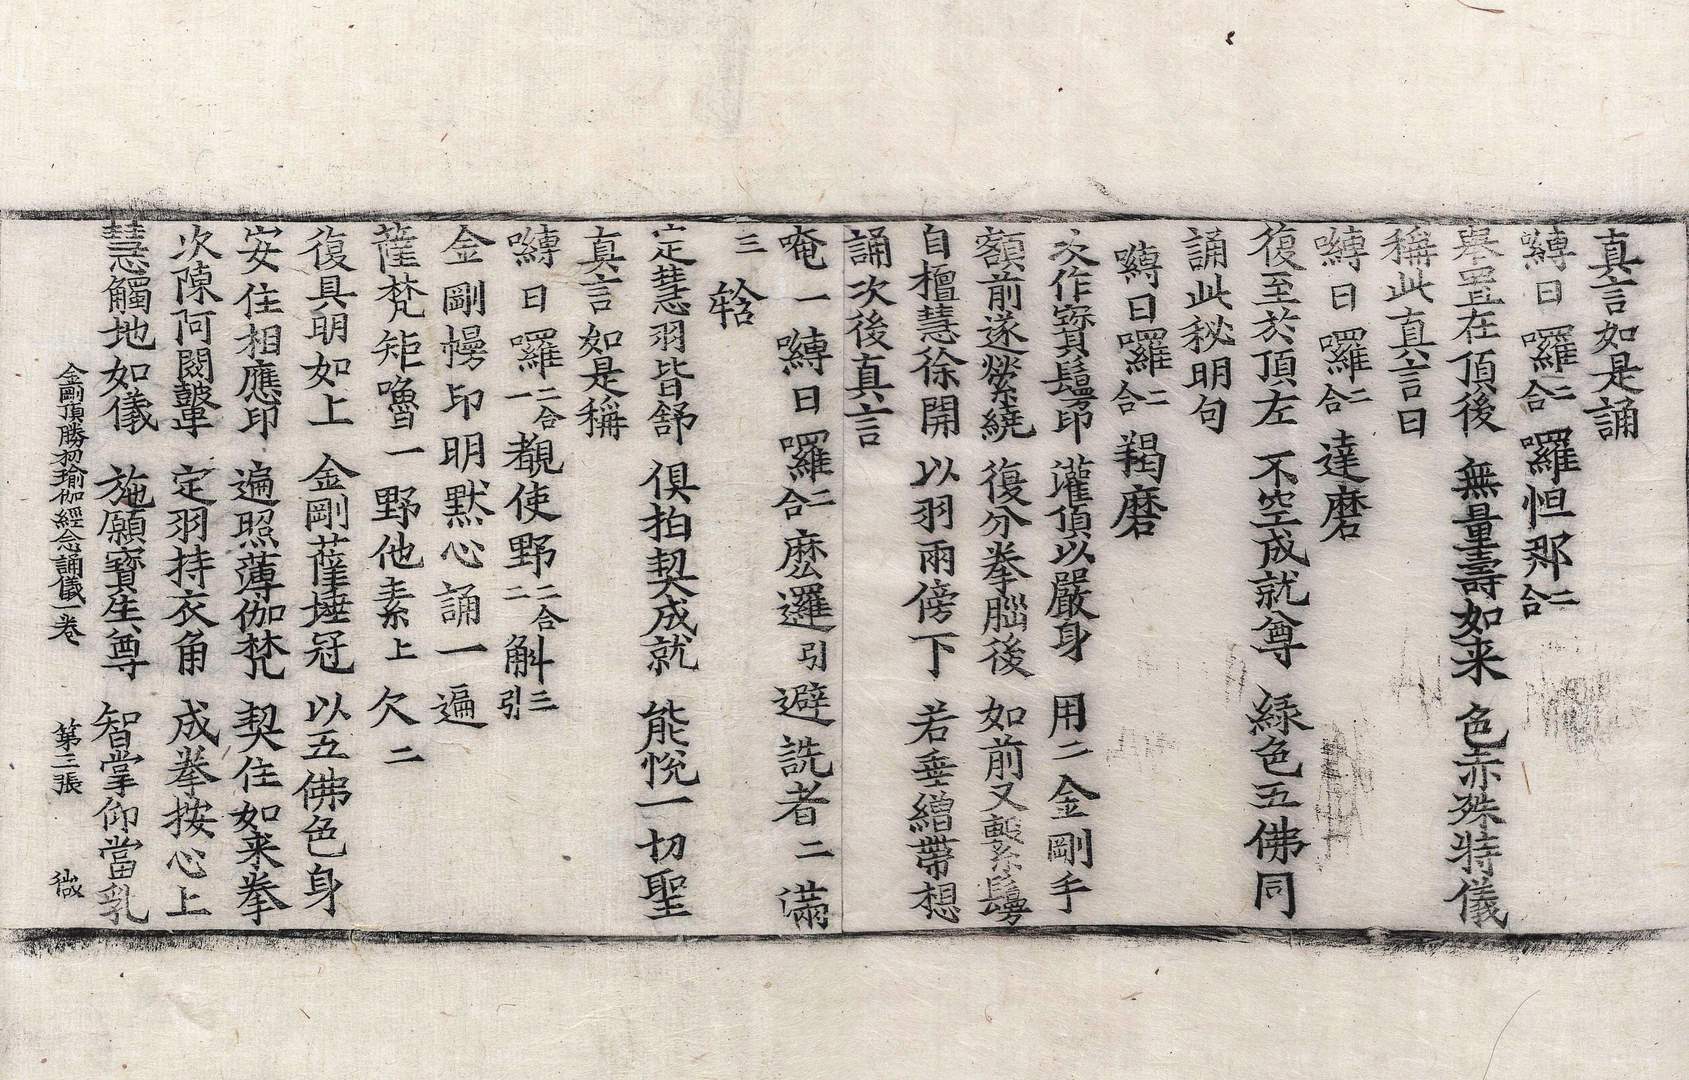 真言如是誦
嚩日囉二合羅怛那二合
擧置在頂後 無量壽如来 色赤殊特儀
稱此真言曰
嚩日囉二合達磨
復至於頂左 不空成就尊 緑色五佛同
誦此秘明句
嚩日囉二合羯磨
次作寳鬘印 灌頂以嚴身 用二金剛手
額前遂縈繞 復分拳腦後 如前又繫鬘
自檀慧徐開 以羽兩傍下 若垂繒帶想
誦次後真言
唵一嚩日囉二合麽邏引避詵者二滿
三𤚥
定慧羽皆舒 俱拍契成就 能悅一切聖
真言如是稱
嚩日囉二合一覩使野二合二斛引三
金剛幔印明默心誦一遍
薩梵矩嚕一野他素上欠二
復具明如上 金剛薩埵冠 以五佛色身
安住相應印 遍照薄伽梵 契住如来拳
次陳阿閦鞞 定羽持衣角 成拳按心上
慧觸地如儀 施願寳生尊 智掌仰當乳
金剛頂勝初瑜伽經念誦儀一卷 第三張